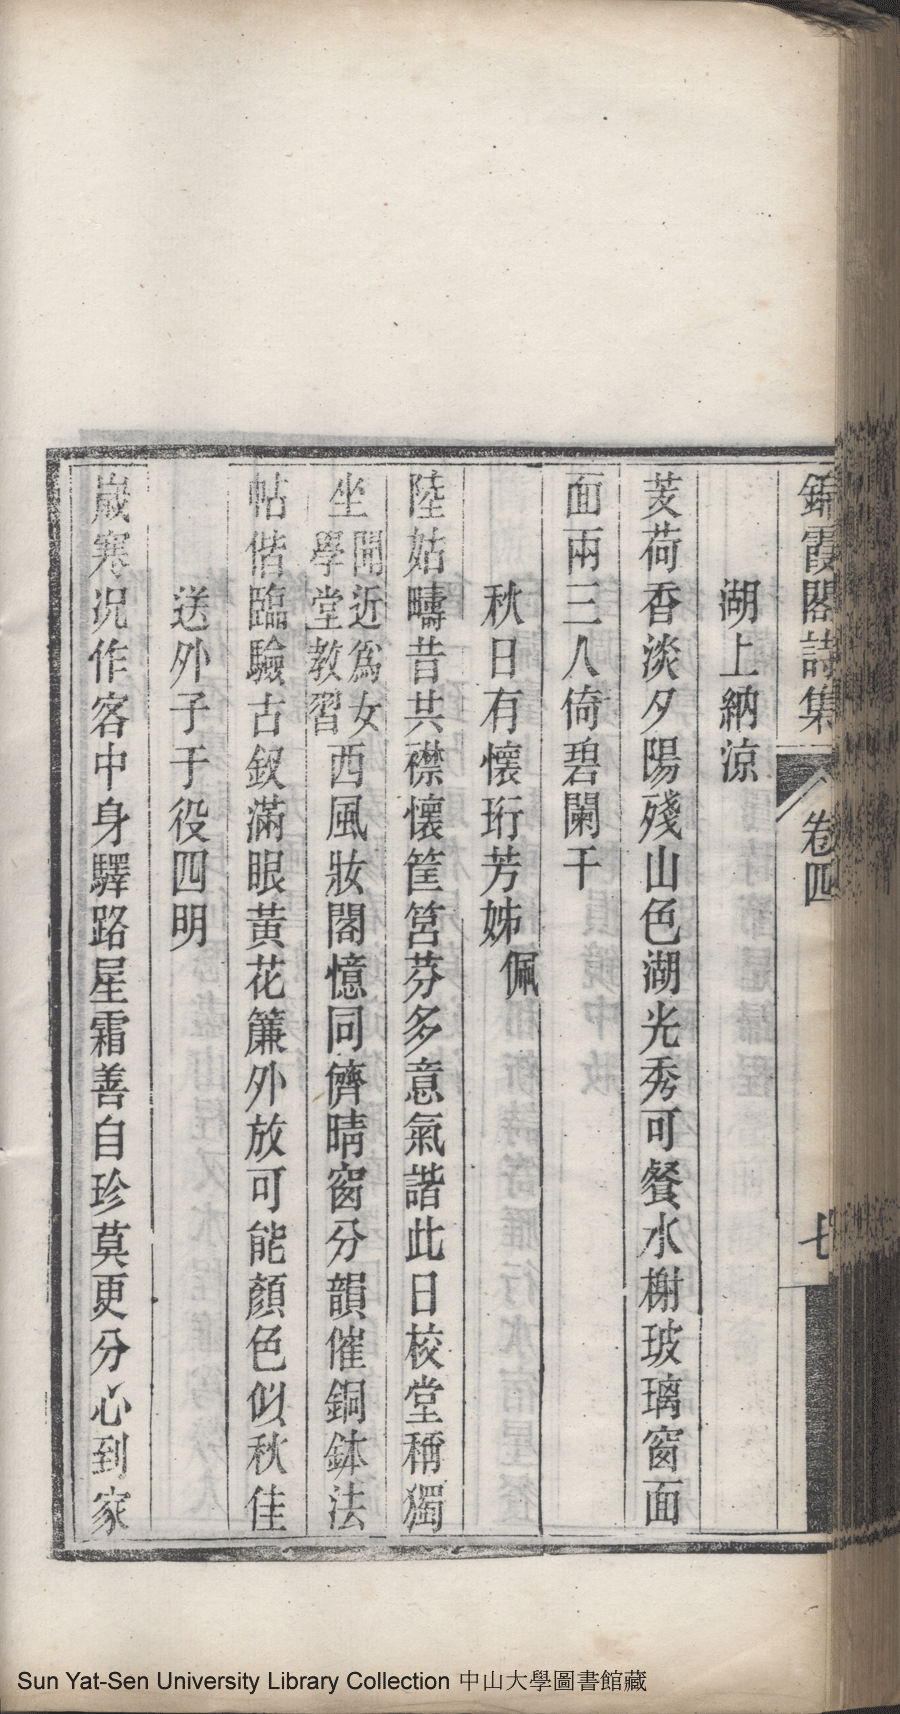 錦霞閣詩集 卷四 七
湖上納涼
芰荷香淡夕陽殘山色湖光秀可餐水榭玻璃窗面
面兩三人倚碧闌干
秋日有懷珩芳姊佩
陸姑疇昔共襟懷筐筥芬多意氣諧此日校堂稱獨
坐聞近爲女學堂教習西風妝閣憶同儕晴窗分韻催銅鉢法
帖偕臨驗古釵滿眼黃花簾外放可能顏色似秋佳
送外子于役四明
歲寒况作客中身驛路星霜善自珍莫更分心到家
Sun Yat-Sen University Library Collection 中山大學圖書館藏